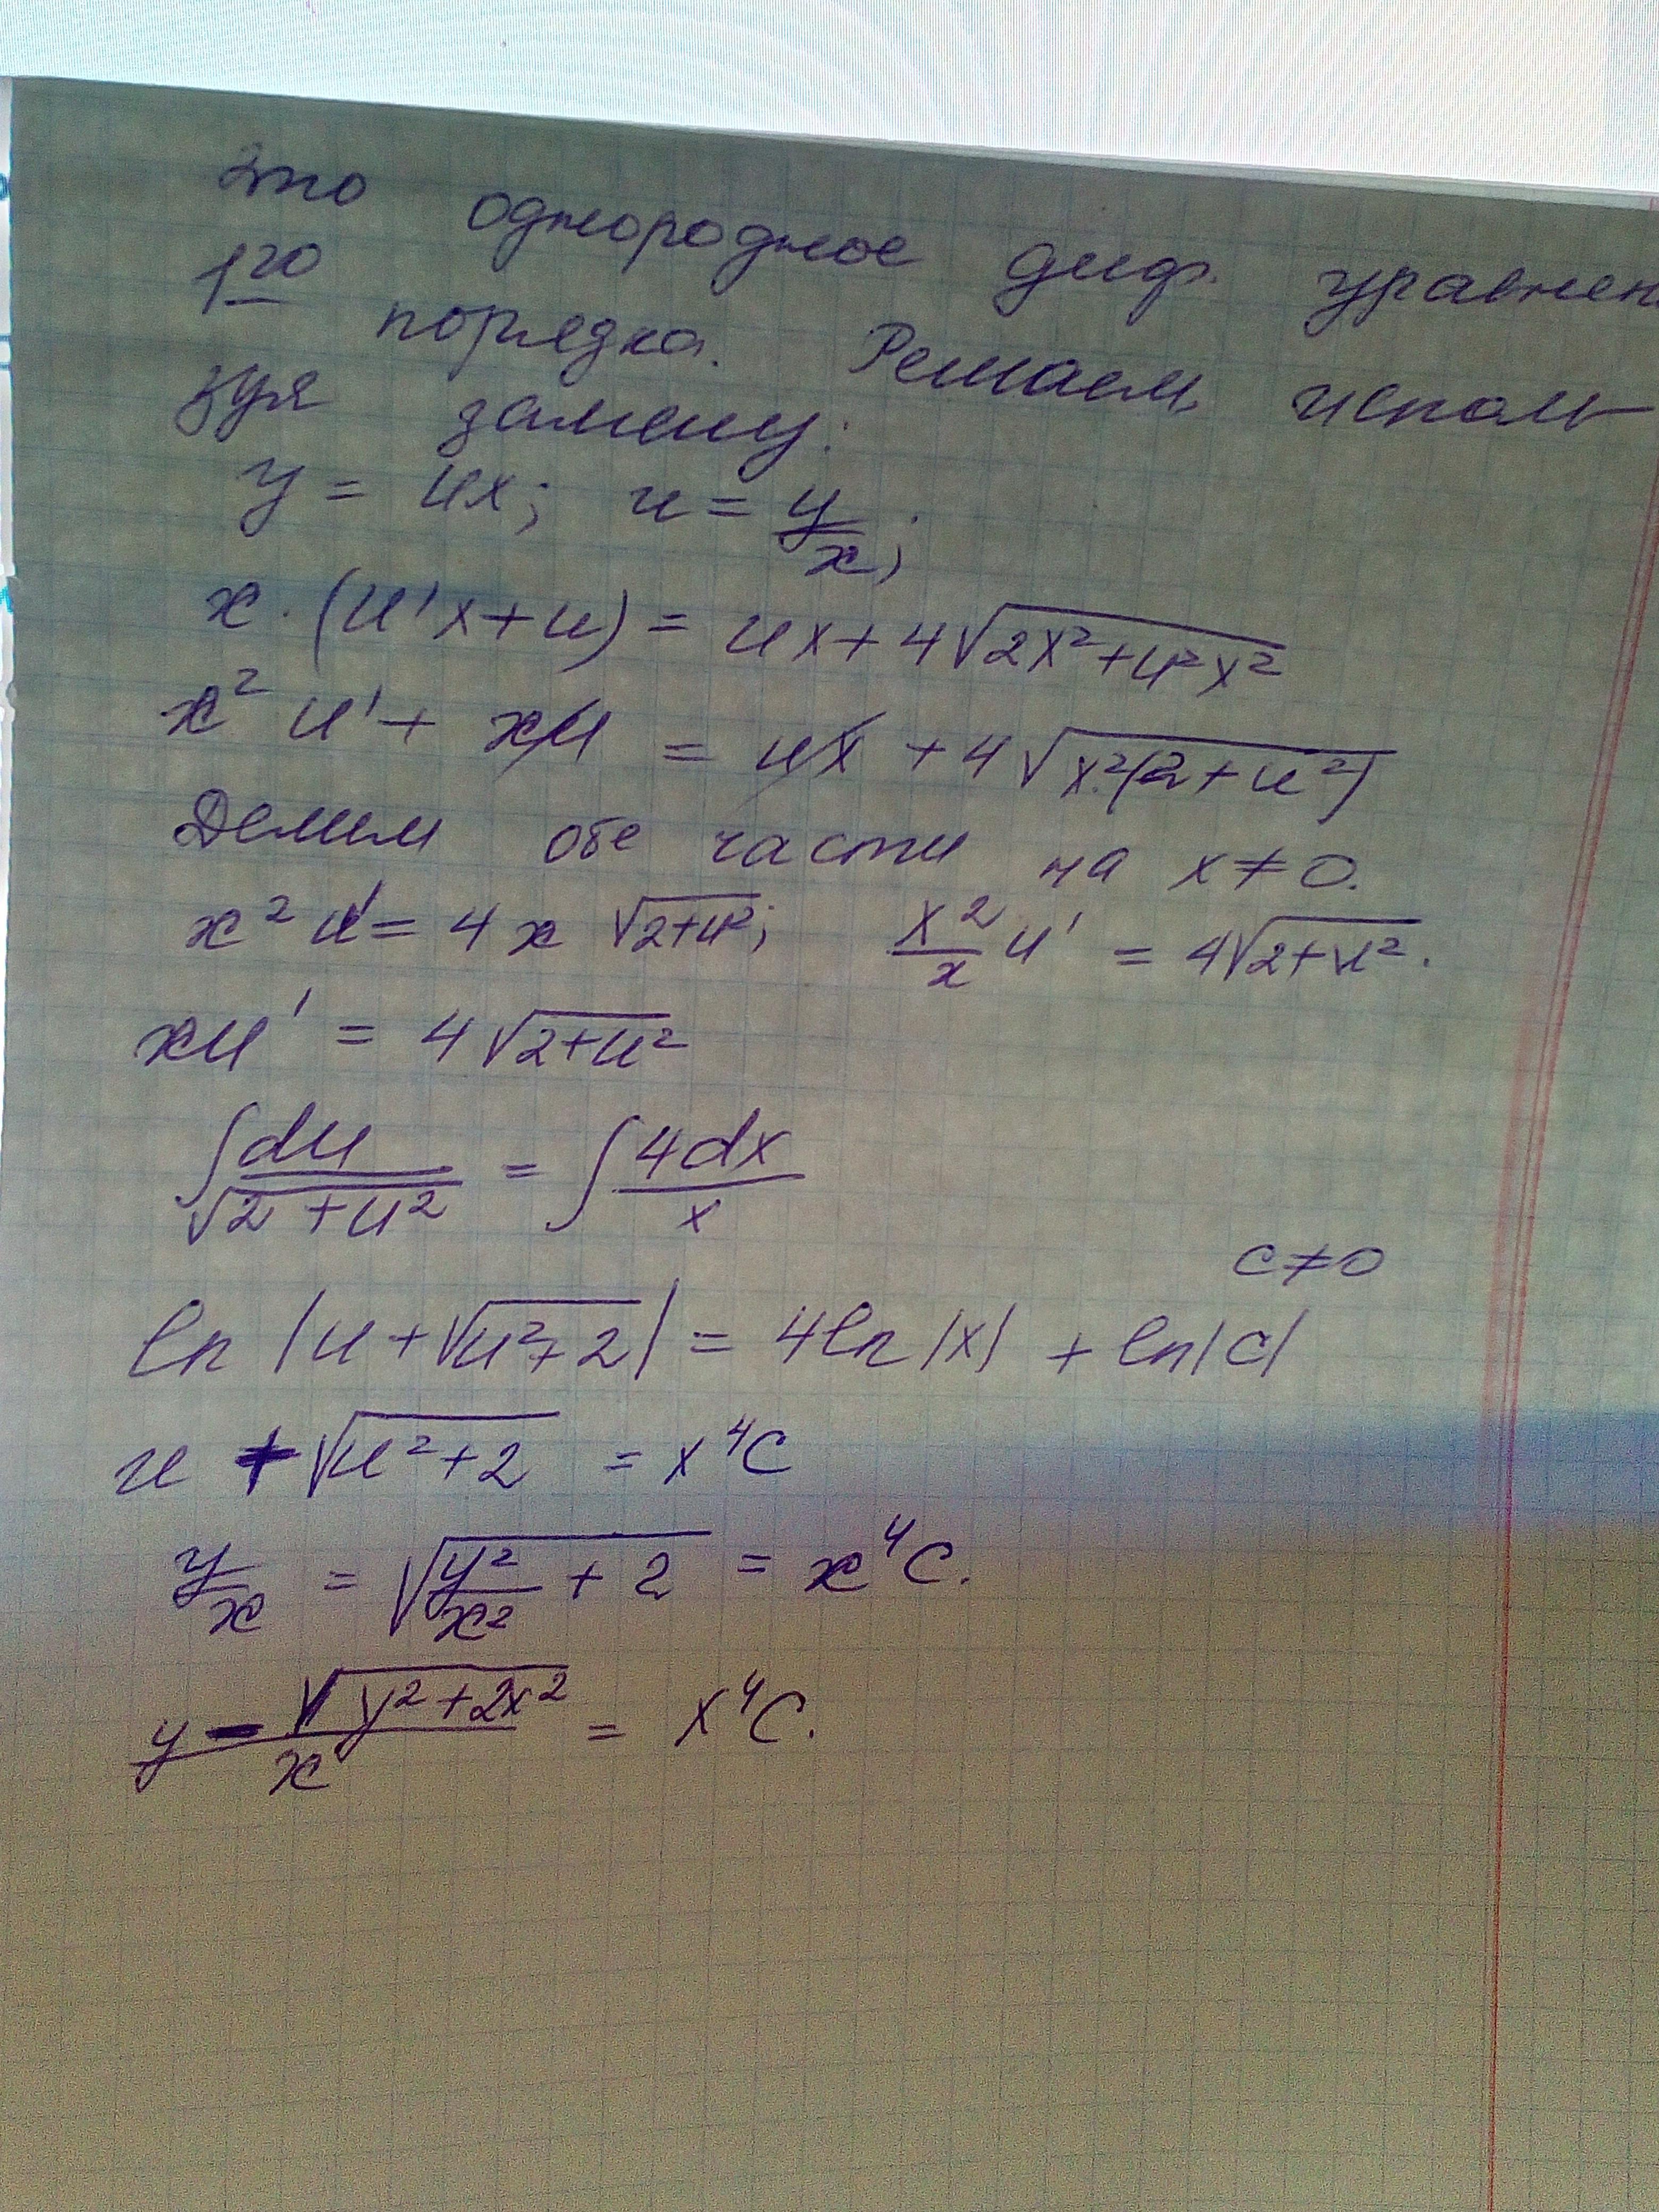 Это однородное диф. уравнен
1го порядка. Решаем, исполь
зуя замену:
y = ux; u = y/x;
x·(u'x+u) = ux+4√(2x²+u²x²)
x² u' + xu = ux + 4√(x²(2+u²))
Делим обе части на x≠0.
x² u' = 4x √(2+u²); x²/x u' = 4√(2+u²).
xu' = 4√(2+u²)
∫ du/√(2+u²) = ∫ 4dx/x
c≠0
ln|u+√(u²+2)| = 4ln|x| + ln|c|
u + √(u²+2) = x⁴C
y/x = √(y²/x² + 2) = x⁴C.
(y - √(y²+2x²))/x = x⁴C.